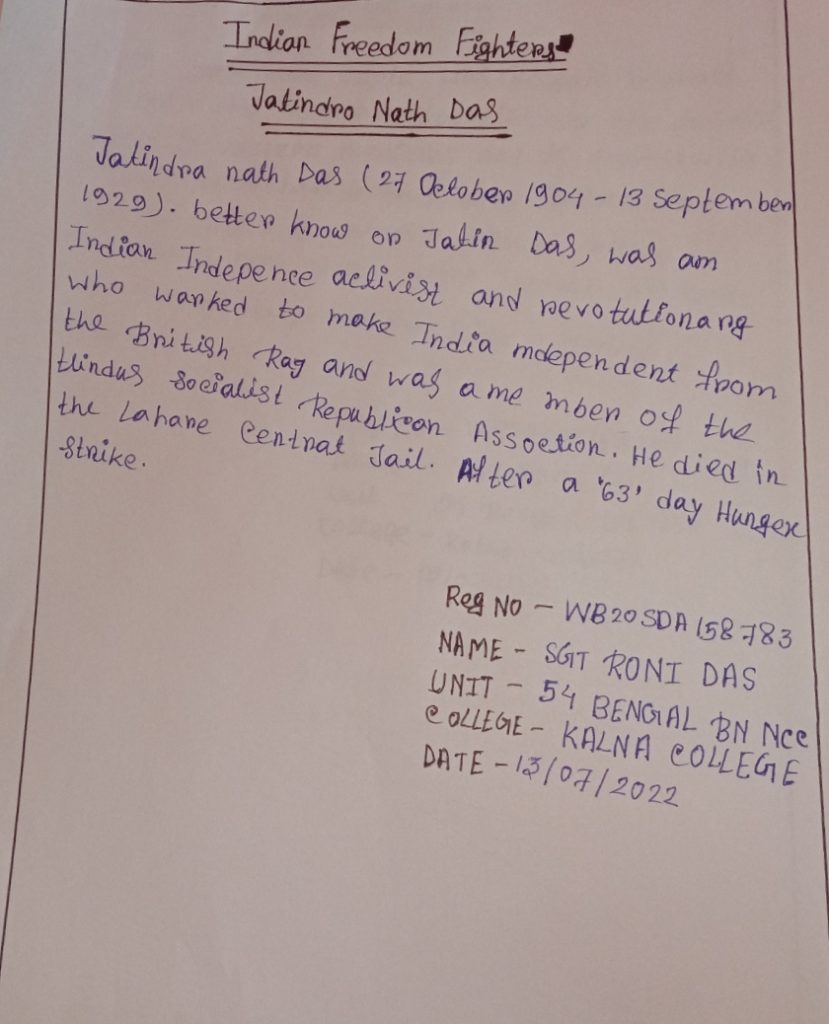 Indian Freedom Fighters
Jatindro Nath Das
Jatindra nath Das (27 October 1904 - 13 September
1929). better know on Jatin Das, was am
Indian Indepence activist and revotutionarg
who wanked to make India mdependent from
the British Rag and was a me mber of the
Hindus Socialist Republican Assoetion. He died in
the Lahare Centrat Jail. After a '63' day Hunger
Strike.
Reg NO - WB20SDA158783
NAME - SGT RONI DAS
UNIT - 54 BENGAL BN NCC
COLLEGE - KALNA COLLEGE
DATE - 13/07/2022